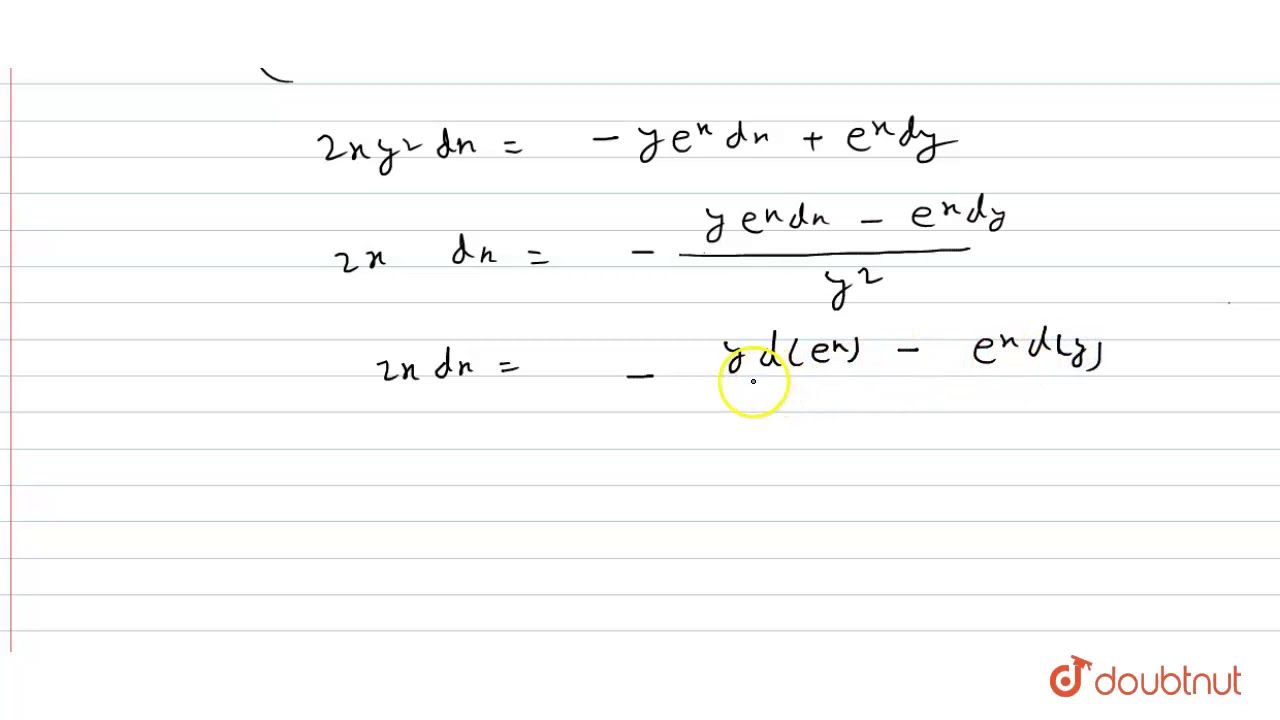 2xy² dx = - yeˣ dx + eˣ dy
y eˣ dx - eˣ dy
2x dx = - ―――
y²
2x dx = - y d(eˣ) - eˣ d(y)
doubtnut